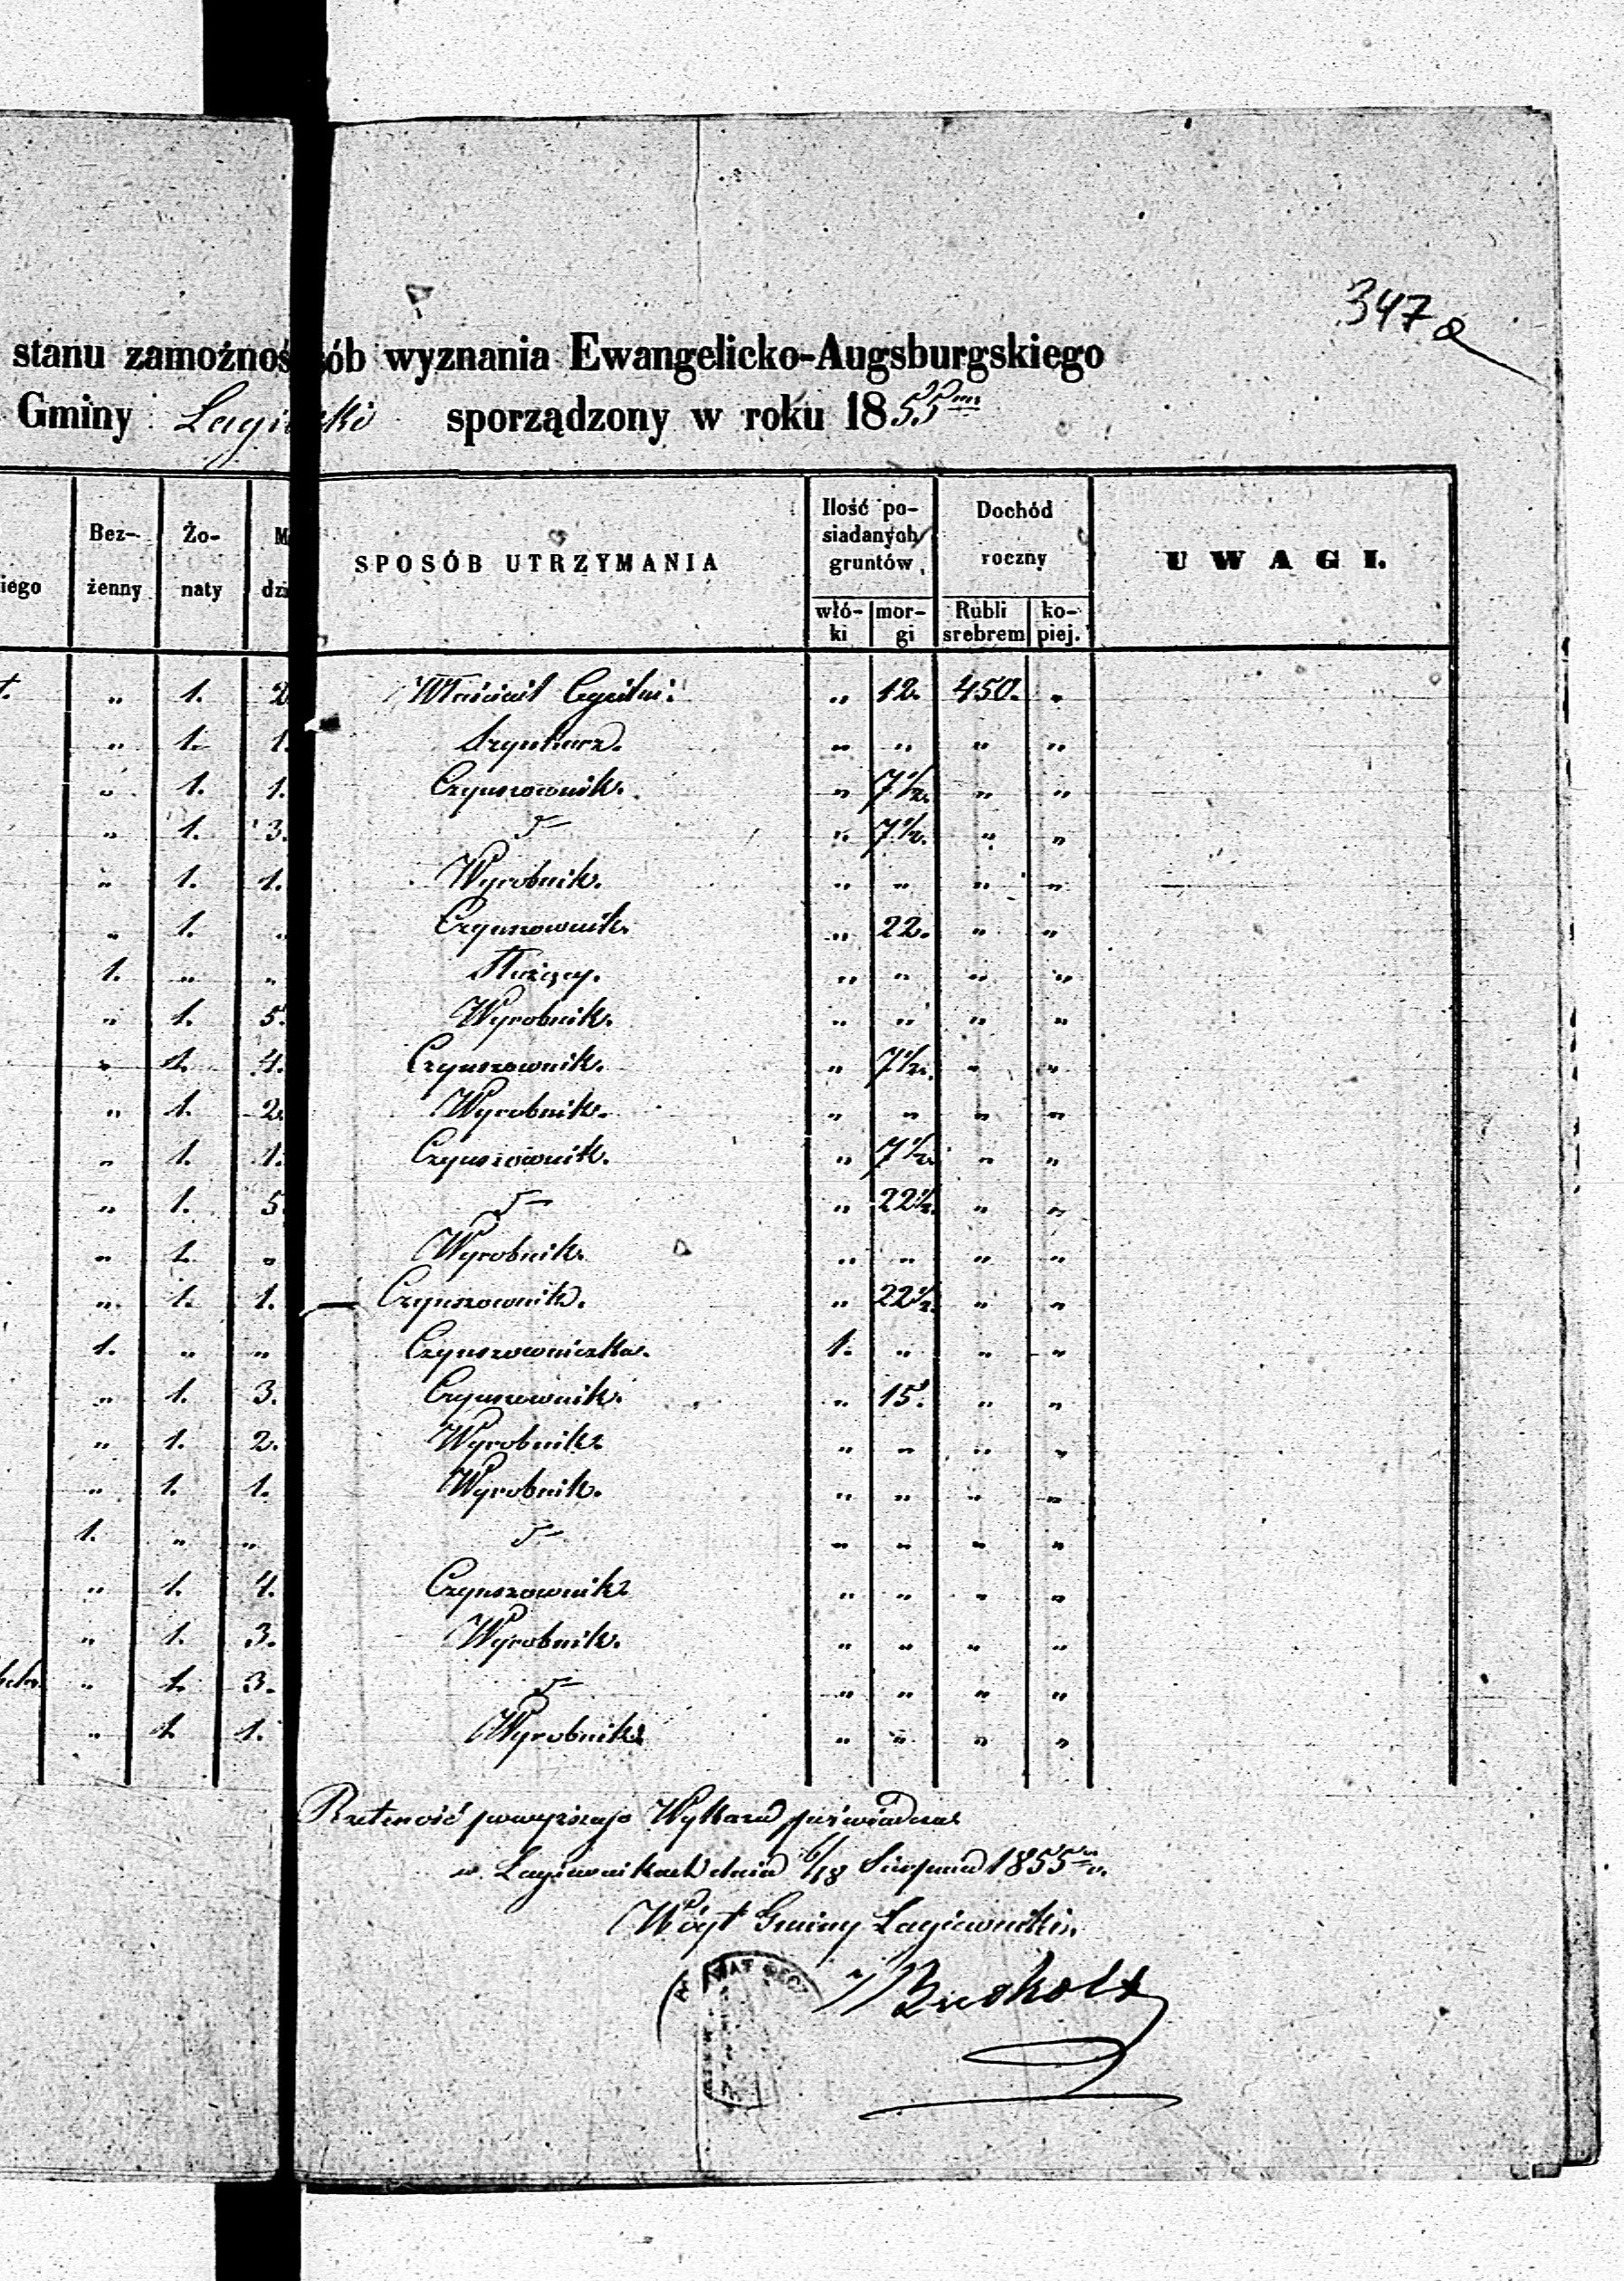 347a
stanu zamożnoś ób wyznania Ewangelicko-Augsburgskiego
Gminy Łagi ki sporządzony w roku 1855
iego Bez-żenny Żo-naty M dzi SPOSÓB UTRZYMANIA Ilość po-siadanych gruntów włó-ki mor-gi Dochód roczny Rubli srebrem ko-piej. UWAGI.
„ 1. 2 Właściciel „ 12. 450. „
„ 1. 1. Szynkarz. „ „ „ „
„ 1. 1. Czynszownik. „ 7 1/2. „ „
„ 1. 3. „ 7 1/2. „ „
„ 1. 1. Wyrobnik. „ „ „ „
„ 1. „ Czynszownik. „ 22. „ „
1. „ „ Służący. „ „ „ „
„ 1. 5. Wyrobnik. „ „ „ „
„ 1. 4. Czynszownik. „ 7 1/2. „ „
„ 1. 2. Wyrobnik. „ „ „ „
„ 1. 1. Czynszownik. „ 7 1/2. „ „
„ 1. 5 „ 22 1/2. „ „
„ 1. „ Wyrobnik. „ „ „ „
„ 1. 1. Czynszownik. „ 22 1/2 „ „
1. „ „ Czynszowniczka. 1. „ „ „
„ 1. 3. Czynszownik. „ 15. „ „
„ 1. 2. Wyrobnik „ „ „ „
„ 1. 1. Wyrobnik. „ „ „ „
1. „ „ „ „ „ „
„ 1. 4. Czynszownik „ „ „ „
„ 1. 3. Wyrobnik. „ „ „ „
„ 1. 3. „ „ „ „
„ 1. 1. Wyrobnik „ „ „ „
Rzetelność powyższego Wykazu poświadcza
w Łagiewnikach dnia 6/18 Sierpnia 1855
Wójt Gminy Łagiewniki